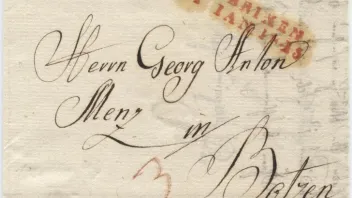 BRIXEN
Herrn Georg Anton
Menz in
Botzen
3